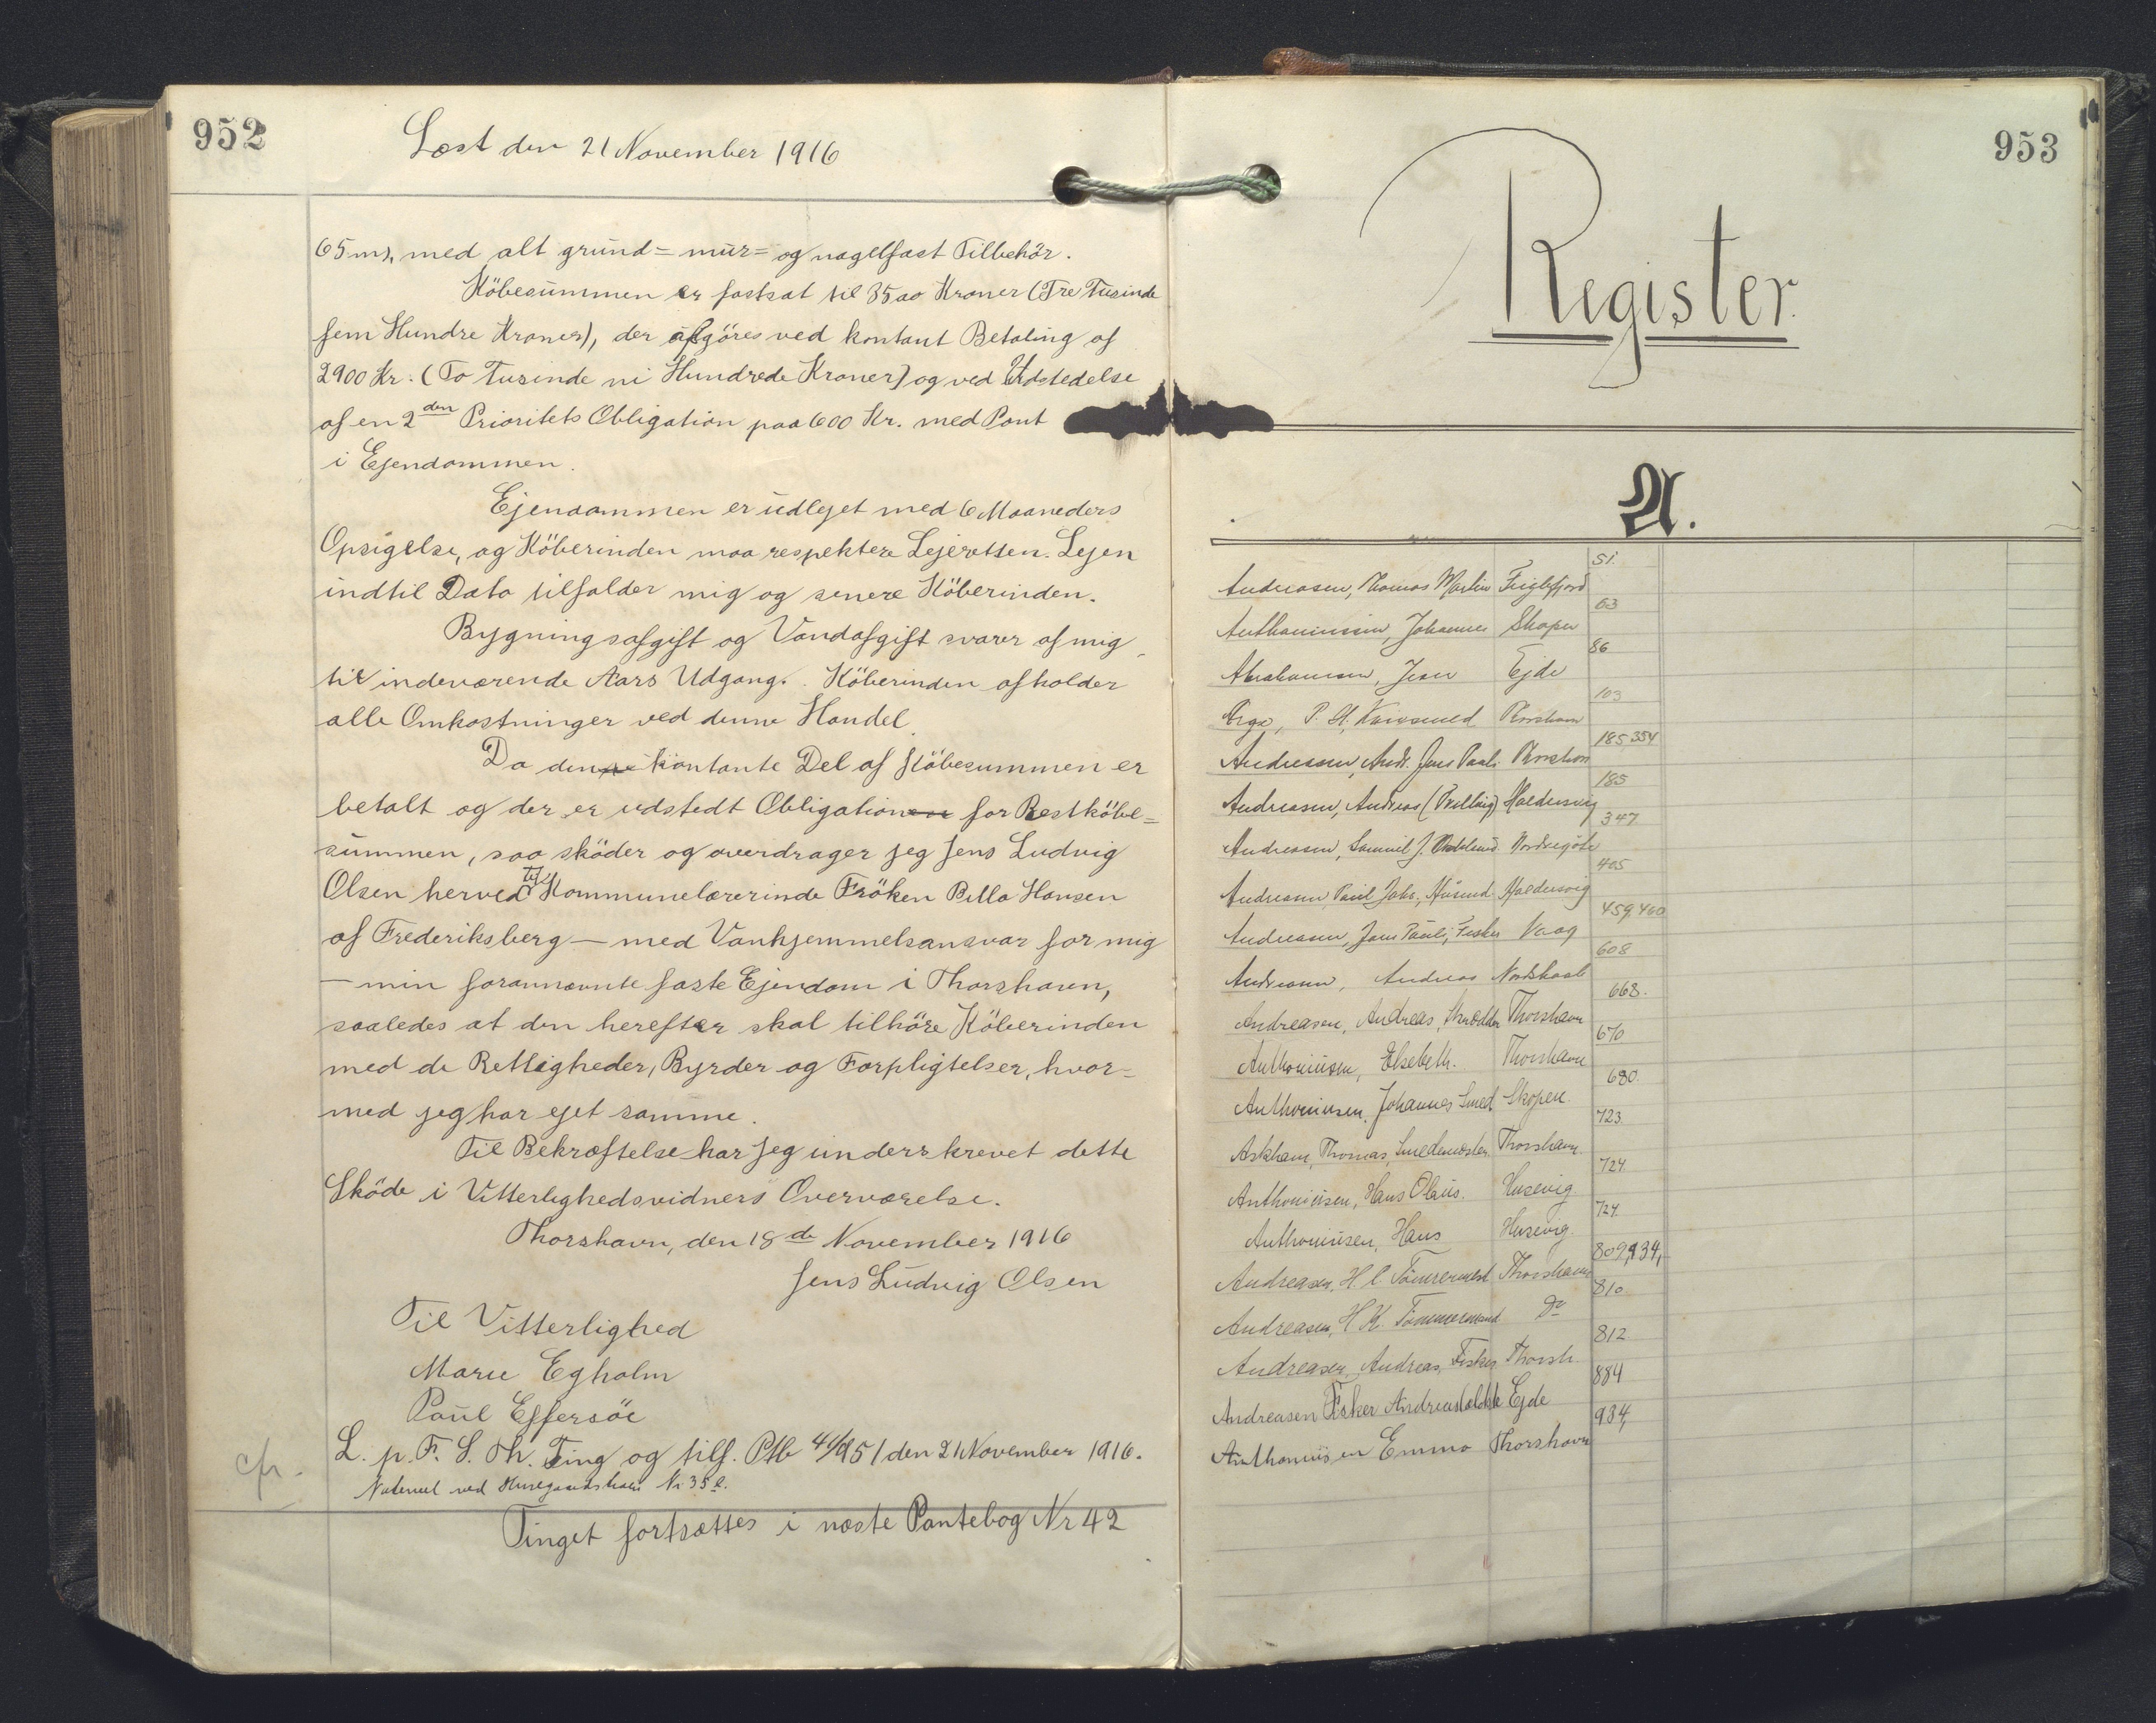 952
Læst den 21 November 1916
65 m), med alt grund= mur= og nagelfast Tilbehör.
Köbesummen er fastsat til 3500 Kroner (Tre Tusinde
fem Hundre Kroner), der afgöres ved kontant Betaling af
2900 Kr. (To Tusinde ni Hundrede Kroner) og ved Udstedelse
af en 2den Prioritets Obligation paa 600 Kr. med Pant
i Ejendommen.
Ejendommen er udlejet med 6 Maaneders
Opsigelse, og Köberinden maa respektere Lejeretten. Lejen
indtil Dato tilfalder mig og senere Köberinden.
Bygningsafgift og Vandafgift svarer af mig
til indeværende Aars Udgang. Köberinden afholder
alle Omkostninger ved denne Handel.
Da den kontante Del af Köbesummen er
betalt og der er udstedt Obligation for Restköbe=
summen, saa sköder og overdrager jeg Jens Ludvig
Olsen herved til Kommunelærerinde Fröken Billa Hansen
af Frederiksberg — med Vanhjemmelsansvar for mig
— min forannævnte faste Ejendom i Thorshavn,
saaledes at den herefter skal tilhöre Köberinden
med de Rettigheder, Byrder og Forpligtelser, hvor=
med jeg har ejet samme.
Til Bekræftelse har jeg underskrevet dette
Sköde i Vitterlighedsvidners Overværelse.
Thorshavn, den 18de November 1916
Jens Ludvig Olsen
Til Vitterlighed
Marie Egholm
Poul Effersöe
L. p. F. S. Th. Ting og tilf. Ptb 41/951 den 21 November 1916.
cfr.
Noteret ved Nr 35e.
Tinget fortsættes i næste Pantebog Nr 42
953
Register.
A.
Andreasen, Thomas Martin Fuglefjord 51.
Anthoniussen, Johannes Skopen 63
Abrahamsen, Jens Ejde 86
Arge, P. Thorshavn 103
Andreasen, Andr. Jens Pauli Thorshavn 185, 354
Andreasen, Andreas Haldersvig 185
Andreasen, Samuel J. Nordregöte 347
Andreasen Poul Johs., Haldersvig 405
Andreasen, Jens Pauli, Fisker Vaag 459, 460
Andreasen, Andreas Nordskaale 608
Andreasen, Andreas, Skrædder Thorshavn 668.
Anthoniusen, Elsebeth. Thorshavn 670
Anthoniusen, Johannes Smed Skopen. 680.
Askham, Thomas, Smedemester, Thorshavn. 723.
Anthoniusen, Hans Olaus. Husevig 724.
Anthoniusen, Hans Husevig. 724.
Andreasen, H C Tömrermest Thorshavn 809, 934,
Andreasen, H K. Tömmermand Do 810
Andreasen, Andreas, Fisker Thorsh. 812
Andreasen Fisker Andreas Ejde 884
Anthoniusen Emma Thorshavn 934,